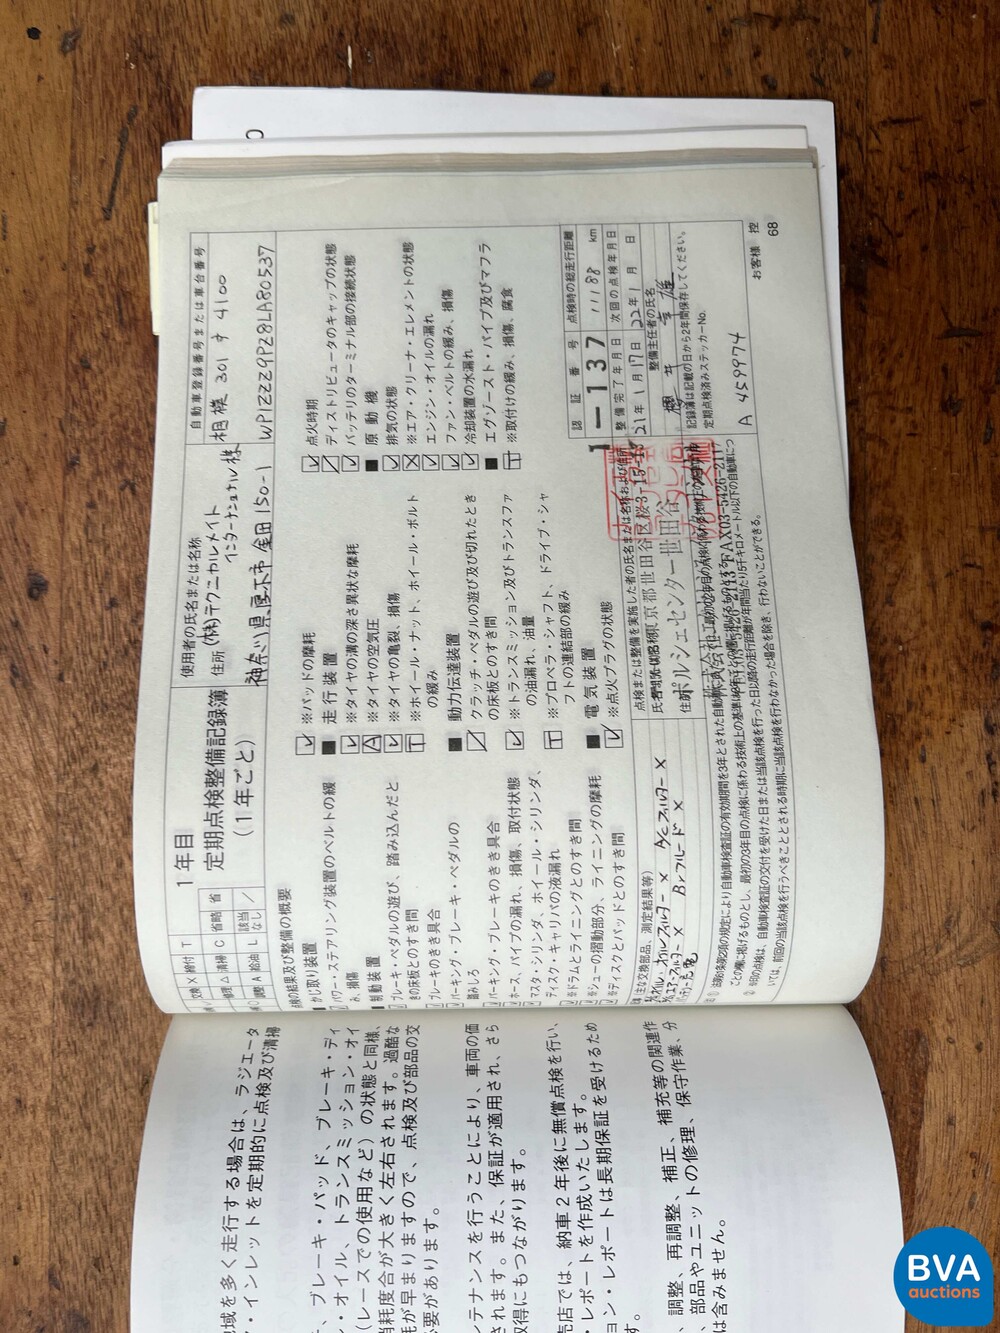 1年目
定期点検整備記録簿
(1年ごと)
使用者の氏名または名称
(株)テクニカルメイト
インターナショナル様
住所
神奈川県厚木市金田150-1
自動車登録番号または車台番号
相模 301 す 4100
WP1ZZZ9PZ8LA80537
交換 X 締付 T
修理 △ 清掃 C 省略 省
調整 A 給油 L 該当なし /
点検の結果及び整備の概要
かじ取り装置
パワー・ステアリング装置のベルトの緩み、損傷
■ 制動装置
ブレーキ・ペダルの遊び、踏み込んだときの床板とのすき間
ブレーキのきき具合
パーキング・ブレーキ・ペダルの踏みしろ
パーキング・ブレーキのきき具合
ホース、パイプの漏れ、損傷、取付状態
マスタ・シリンダ、ホイール・シリンダ、
ディスク・キャリパの液漏れ
※ドラムとライニングとのすき間
※シューの摺動部分、ライニングの摩耗
※ディスクとパッドとのすき間
※パッドの摩耗
■ 走行装置
※タイヤの溝の深さ異状な摩耗
※タイヤの空気圧
※タイヤの亀裂、損傷
※ホイール・ナット、ホイール・ボルトの緩み
■ 動力伝達装置
クラッチ・ペダルの遊び及び切れたときの床板とのすき間
※トランスミッション及びトランスファの油漏れ、油量
※プロペラ・シャフト、ドライブ・シャフトの連結部の緩み
■ 電気装置
※点火プラグの状態
点火時期
ディストリビュータのキャップの状態
バッテリのターミナル部の接続状態
■ 原動機
排気の状態
※エア・クリーナ・エレメントの状態
エンジン・オイルの漏れ
ファン・ベルトの緩み、損傷
冷却装置の水漏れ
■ エグゾースト・パイプ及びマフラ
※取付けの緩み、損傷、腐食
(主な交換部品、測定結果等)
オイルフィルター X A/Cフィルター X
エアーフィルター X Brフルード X
点検または整備を実施した者の氏名または名称および住所
東京都世田谷区桜3-15-15
ポルシェセンター世田谷
FAX03-5426-2117
認証番号
1-137
点検時の総走行距離
11188 km
整備完了年月日
21年1月17日
次回の点検年月日
22年1月 日
整備主任者の氏名
記録簿は記載の日から2年間保存してください。
定期点検済みステッカーNo.
A 459974
お客様 控
68
地域を多く走行する場合は、ラジエータ
・インレットを定期的に点検及び清掃
、ブレーキ・パッド、ブレーキ・ディ
・オイル、トランスミッション・オイ
(レースでの使用など)の状態と同様、
消耗度合が大きく左右されます。過酷な
耗が早まりますので、点検及び部品の交
必要があります。
ンテナンスを行うことにより、車両の価
されます。また、保証が適用され、さら
取得にもつながります。
売店では、納車2年後に無償点検を行い、
・レポートを作成いたします。
ョン・レポートは長期保証を受けるため
す。
、調整、再調整、補正、補充等の関連作
、部品やユニットの修理、保守作業、分
は含みません。
BVA
auctions